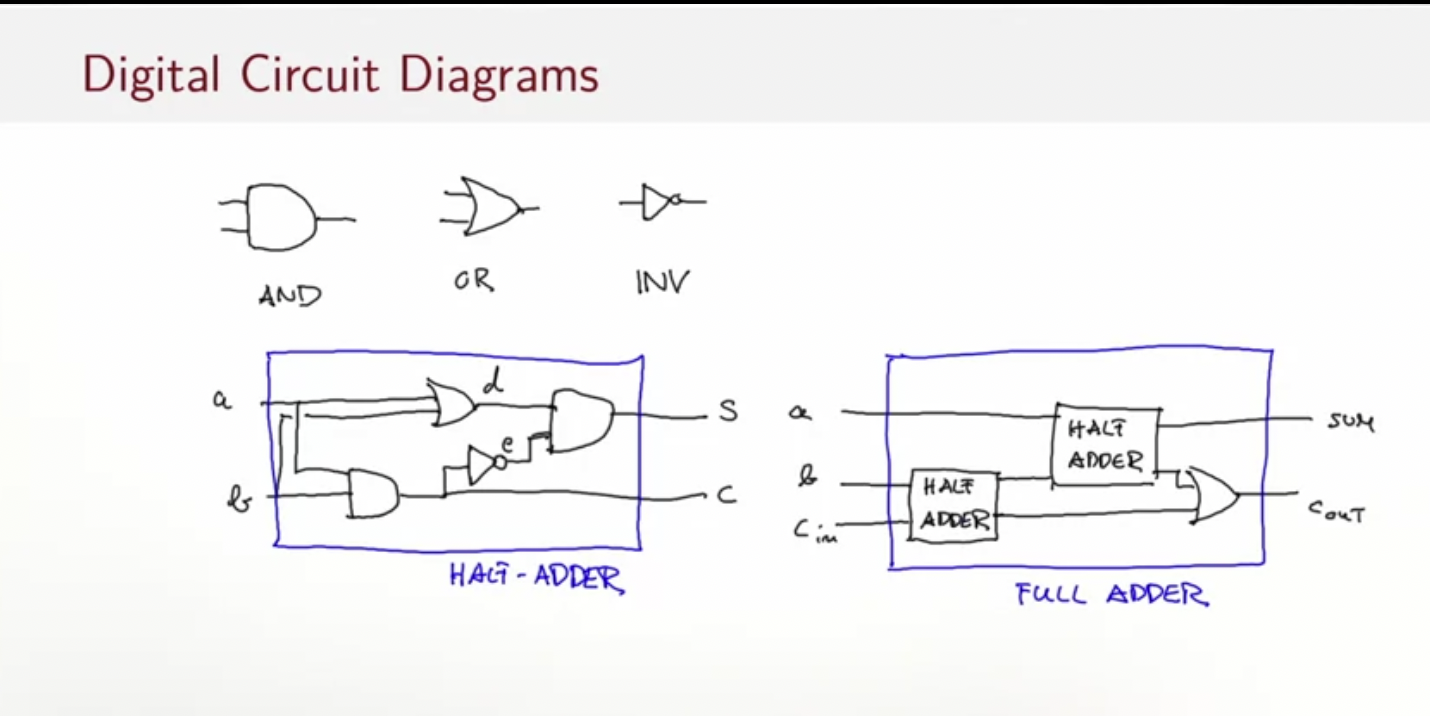 Digital Circuit Diagrams
AND
OR
INV
a
b
d
e
S
C
HALF-ADDER
a
b
Cin
HALF
ADDER
HALF
ADDER
SUM
COUT
FULL ADDER